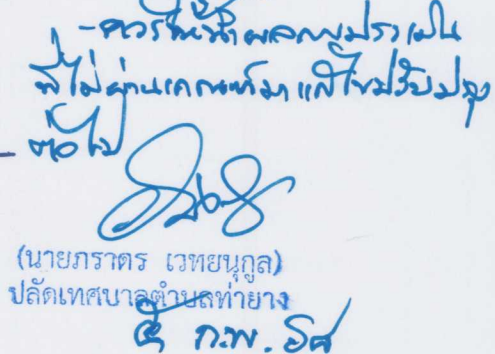 - ควรให้นำผลการประเมิน
ที่ไม่ผ่านเกณฑ์มาแก้ไขปรับปรุง
ต่อไป
(นายภราดร เวทยนุกูล)
ปลัดเทศบาลตำบลท่ายาง
ก.พ.